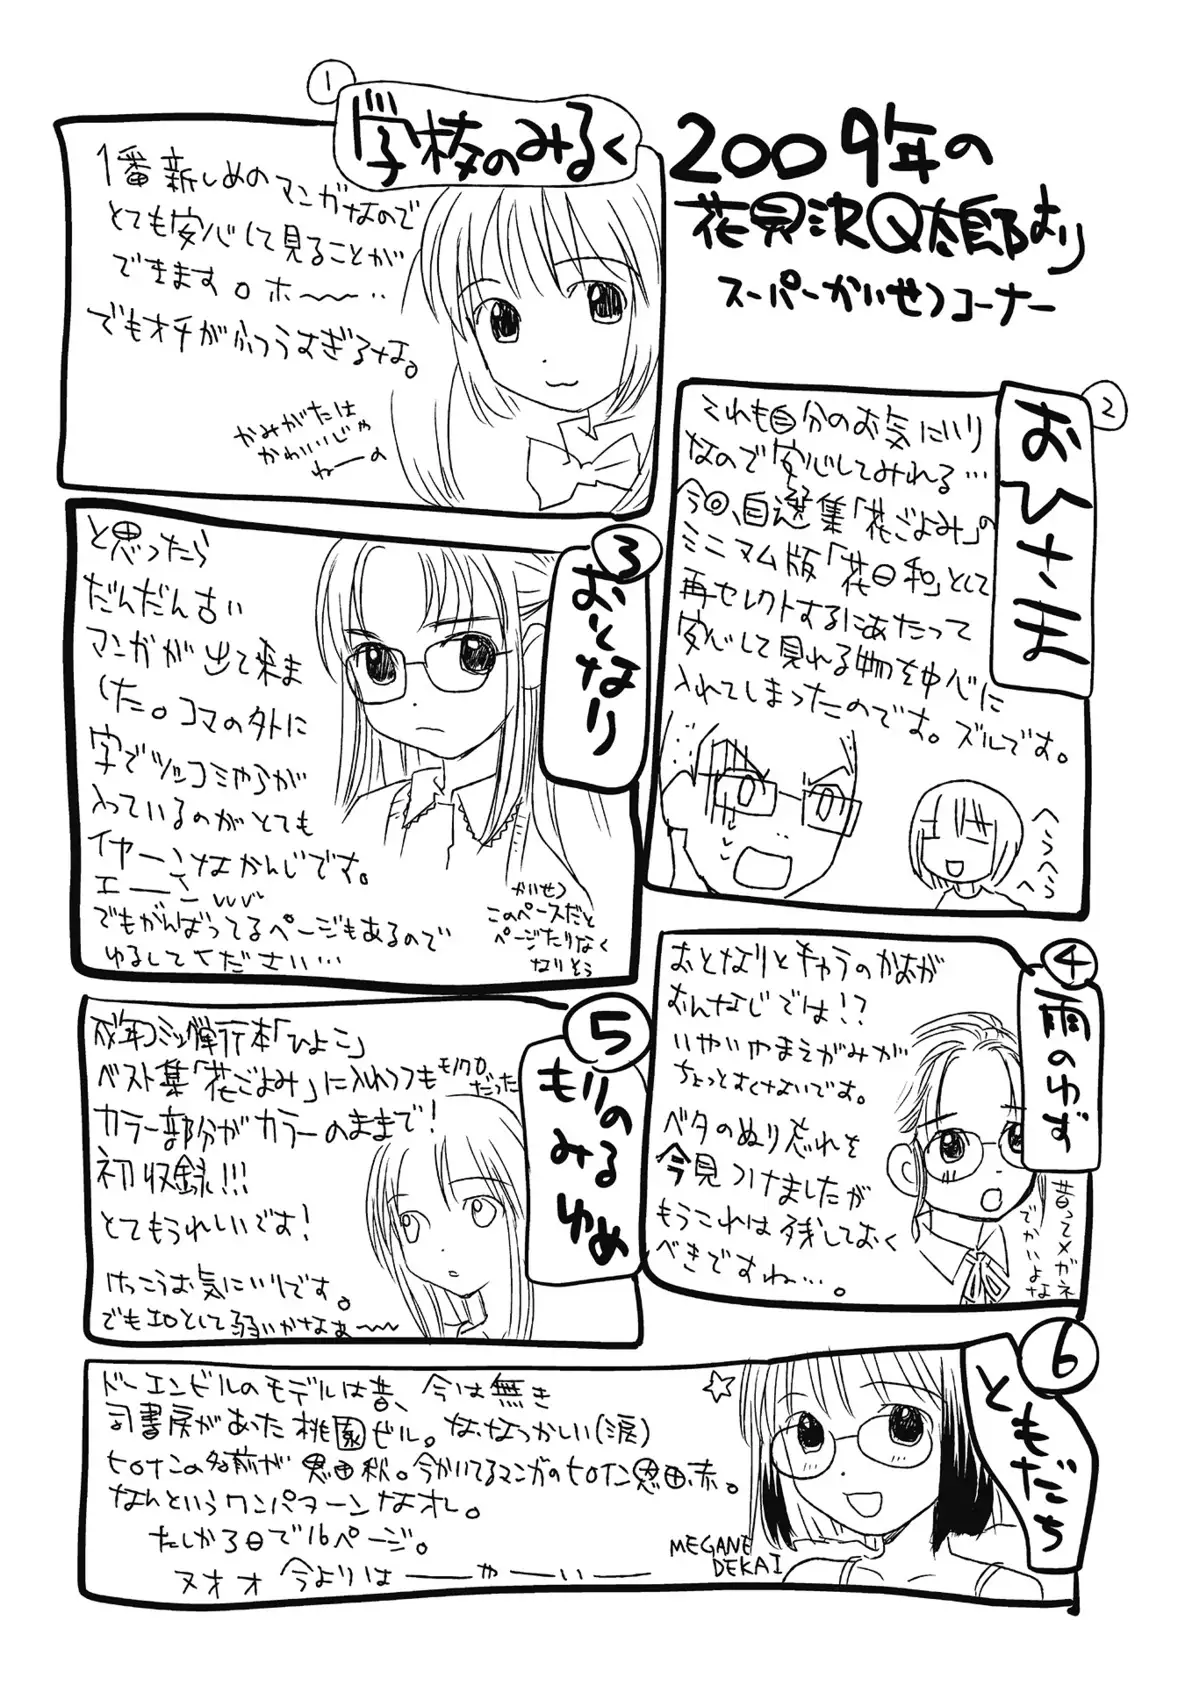 2009年の
花見沢Q太郎より
スーパーかいせつコーナー
1
学校のみるく
1番新しめのマンガなので
とても安心して見ることが
できます。ホ〜〜‥
でもオチがふつうすぎるな。
かみがたは
かわいいじゃ
ねーの
2
おひさま
それも自分のお気にいり
なので安心してみれる…
今回、自選集「花ごよみ」の
ミニマム版「花日和」として
再セレクトするにあたって
安心して見れる物を中心に
入れてしまったのです。ズルです。
へらへら
へ
3
おとなり
と思ったら
だんだん古い
マンガが出て来ま
した。コマの外に
字でツッコミやらが
入っているのがとても
イヤーンなかんじです。
エーーン
でもがんばってるページもあるので
ゆるしてください…
かいせつ
このペースだと
ページたりなく
なりそう
4
雨のゆず
おとなりとキャラのかおが
おんなじでは!?
いやいやまえがみが
ちょっとすくないです。
ベタのぬり忘れを
今見つけましたが
もうこれは残しておく
べきですね…。
昔ってメガネ
でかいよな
5
もりの
みるゆめ
成年コミック単行本「ひよこ」
ベスト集「花ごよみ」に入れつつもモノクロ
だった
カラー部分がカラーのままで!
初収録!!!
とてもうれしいです!
けっこうお気にいりです。
でもエロとして弱いかなぁ〜〜
6
ともだち
ドーエンビルのモデルは昔、今は無き
司書房があった桃園ビル。ななつかしい(涙)
ヒロインの名前が恩田秋。今かいてるマンガのヒロイン恩田赤。
なんというワンパターンなオレ。
たしか3日で16ページ。
ヌオオ 今よりはーーやーいー
MEGANE
DEKAI